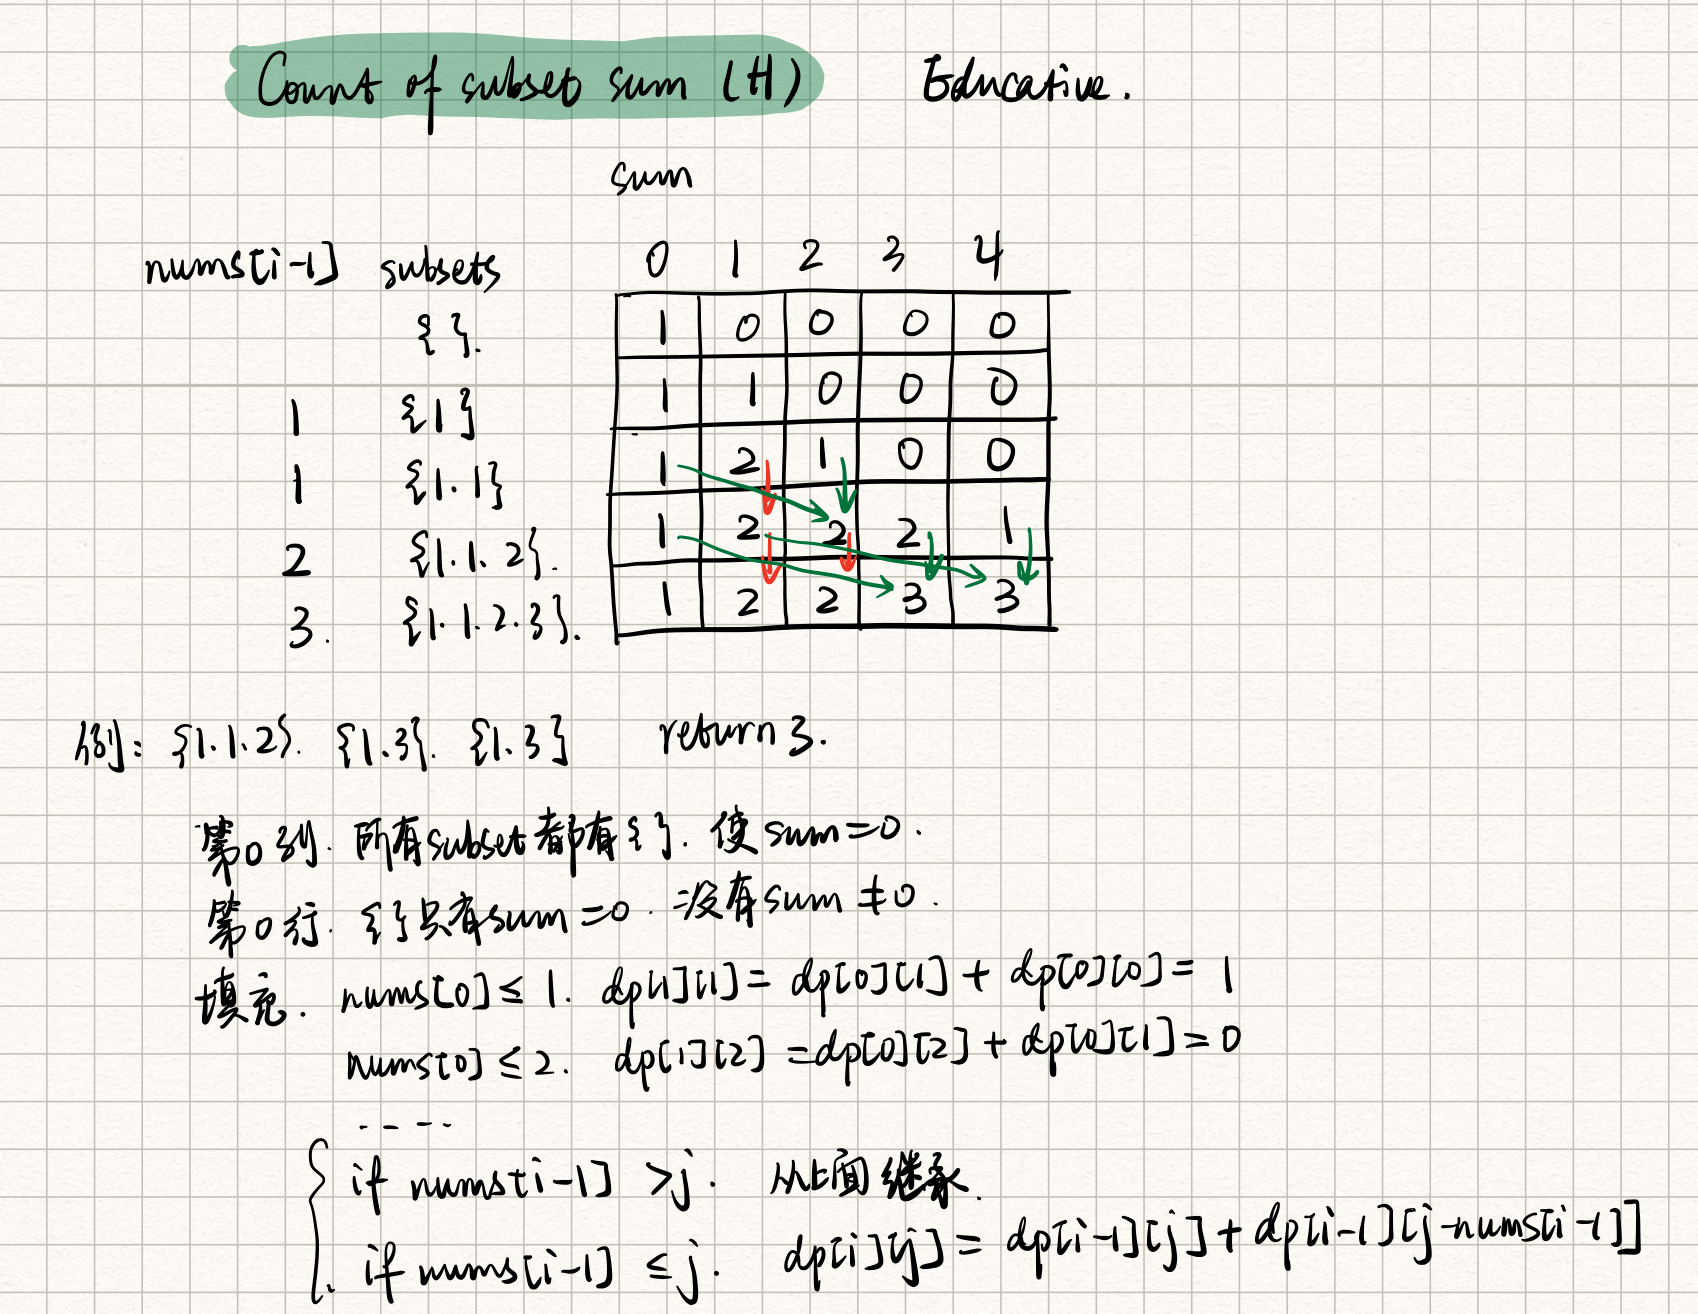 Count of subset sum (H) Educative.
sum
nums[i-1] subsets 0 1 2 3 4
{ }. 1 0 0 0 0
1 {1} 1 1 0 0 0
1 {1.1} 1 2 1 0 0
2 {1.1.2}. 1 2 2 2 1
3. {1.1.2.3}. 1 2 2 3 3
例: {1.1.2}. {1.3}. {1.3} return 3.
第0列. 所有subset都有{}. 使sum=0.
第0行. {}只有sum=0. 没有sum≠0.
填充. nums[0]≤1. dp[1][1]= dp[0][1]+ dp[0][0]= 1
nums[0]≤2. dp[1][2] =dp[0][2]+ dp[0][1]=0
-----
if nums[i-1] >j. 从上面继承.
if nums[i-1] ≤j. dp[i][j]= dp[i-1][j]+ dp[i-1][j-nums[i-1]]